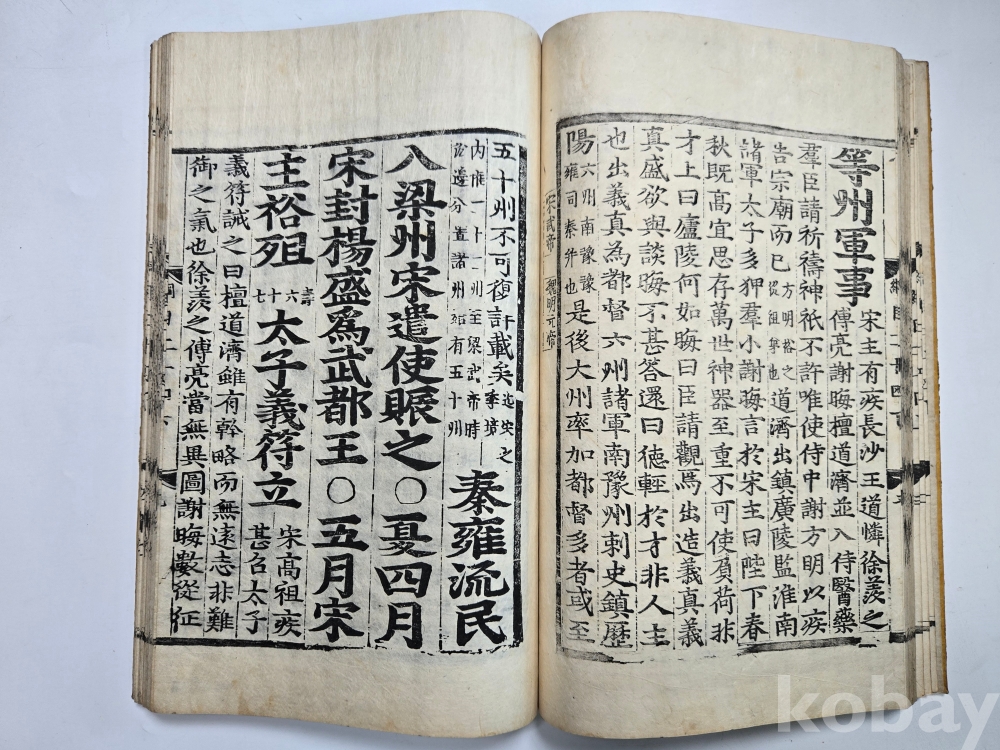 等州軍事
宋主有疾長沙王道憐徐羨之
傅亮謝晦檀道濟並入侍醫藥
羣臣請祈禱神祇不許唯使侍中謝方明以疾
告宗廟而已方明裕之從祖弟也道濟出鎮廣陵監淮南
諸軍太子多狎羣小謝晦言於宋主曰陛下春
秋既高宜思存萬世神器至重不可使負荷非
才上曰廬陵何如晦曰臣請觀焉出造義真義
真盛欲與談晦不甚答還曰德輕於才非人主
也出義真為都督六州諸軍南豫州刺史鎮歷
陽六州南豫豫雍司秦并也是後大州率加都督多者或至
宋武帝 魏明元帝
五十州不可復計載矣
州至梁武帝時
分置諸州始有五十州
秦雍流民
八梁州宋遣使賑之〇夏四月
宋封楊盛爲武都王〇五月宋
主裕殂壽六十七太子義符立
宋高祖疾
甚召太子
義符誡之曰檀道濟雖有幹略而無遠志非難
御之氣也徐羨之傅亮當無異圖謝晦數從征
kobay